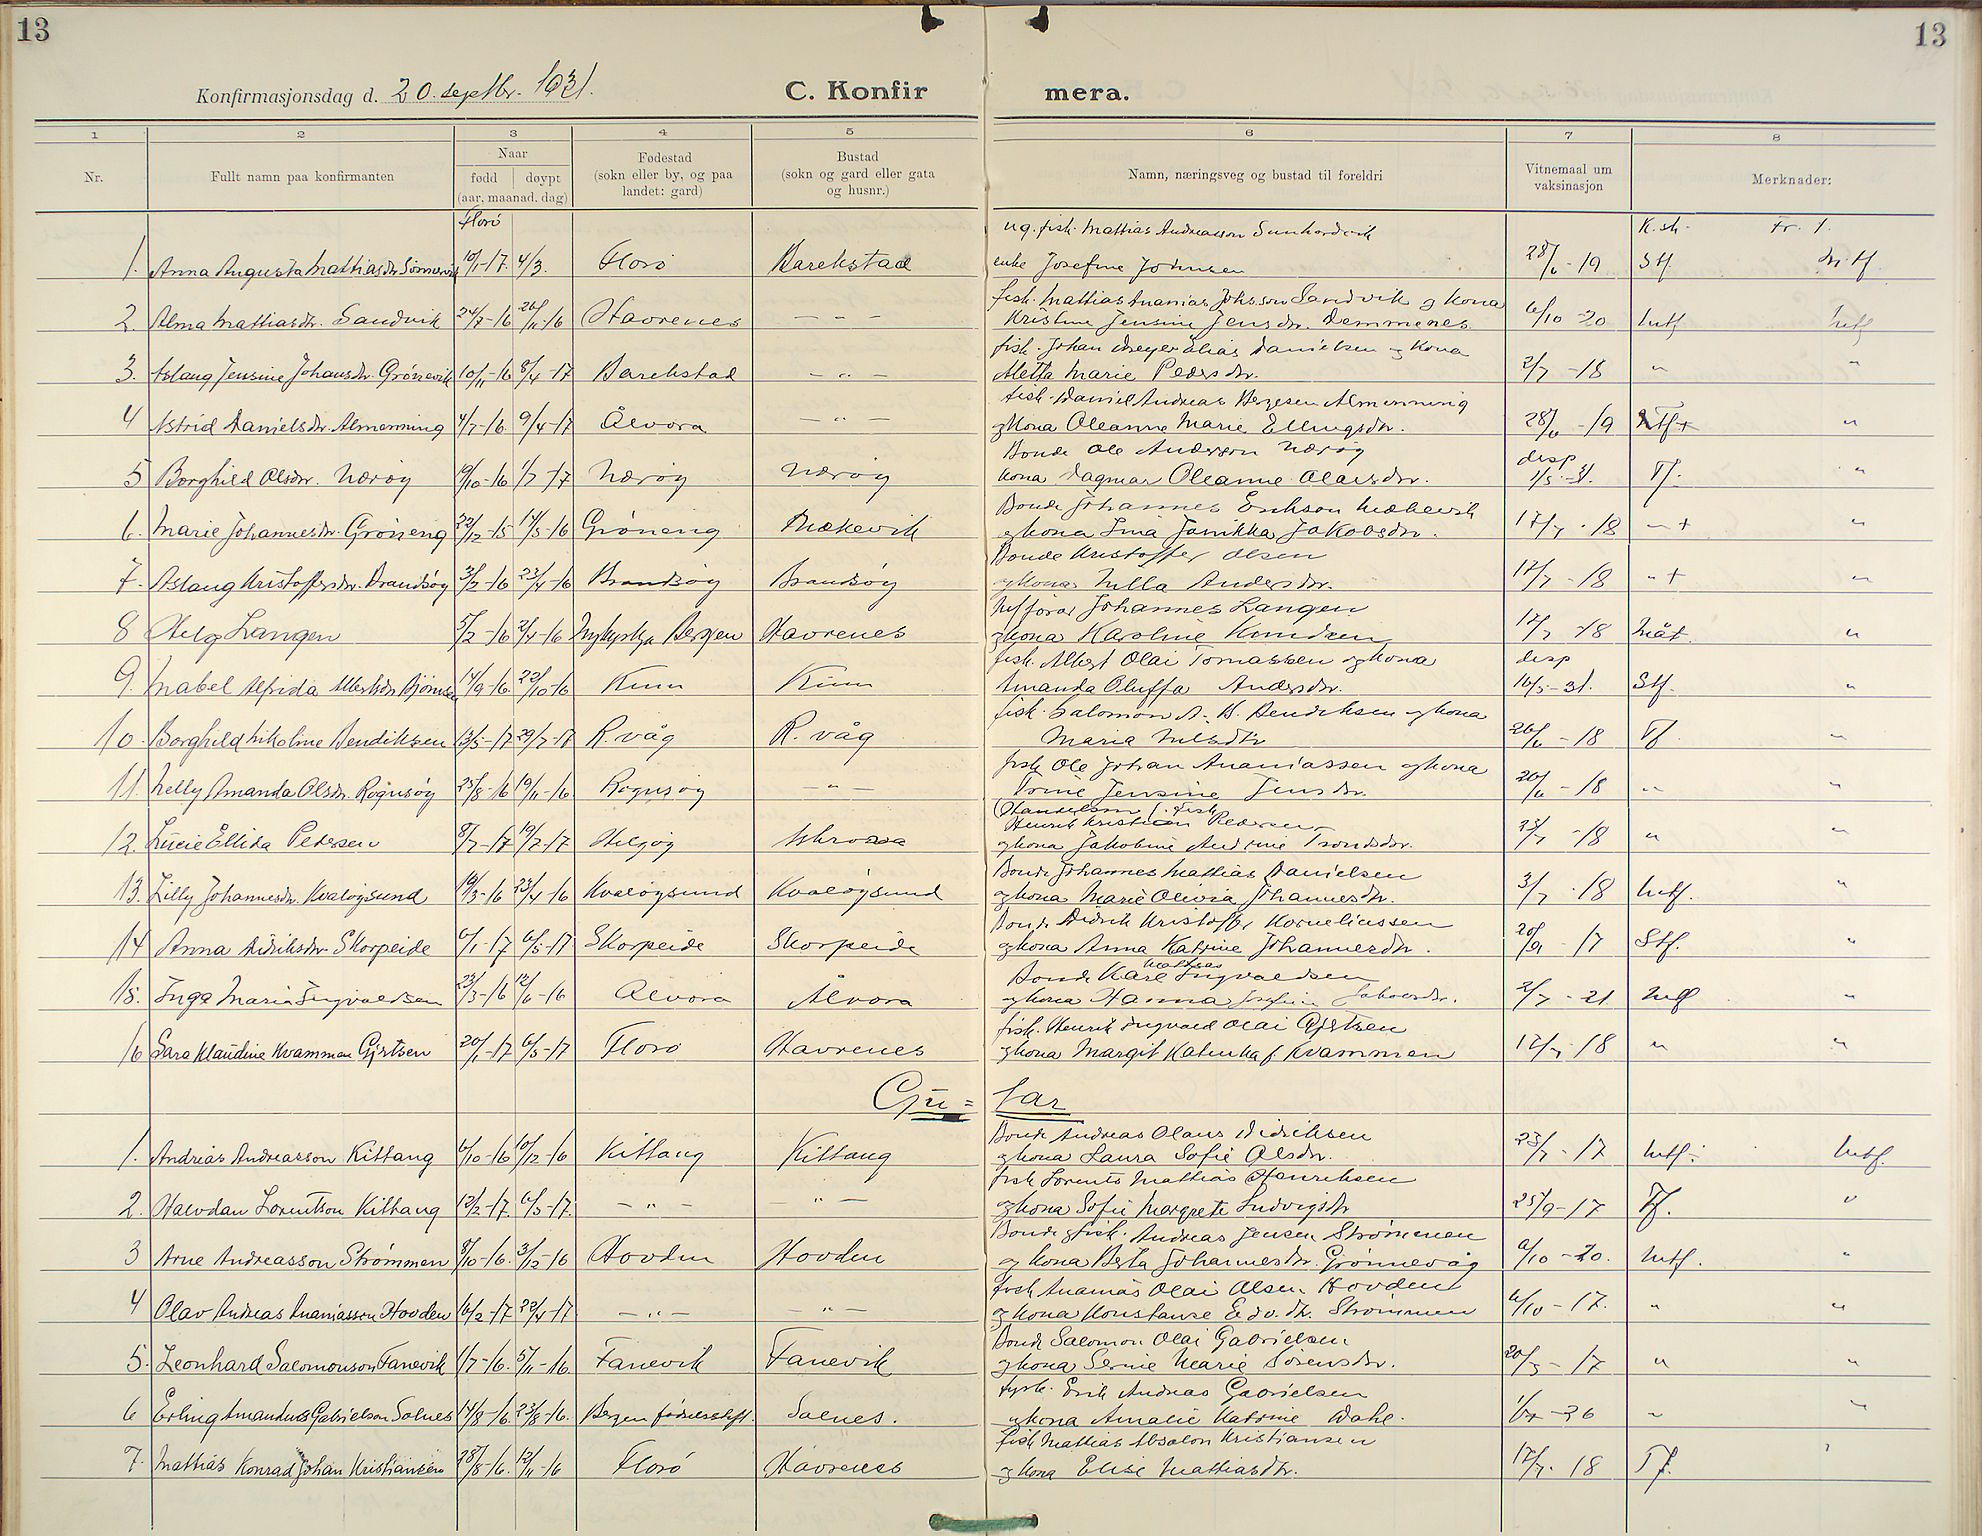 13 13
Konfirmasjonsdag d. 20. septbr. 1931. C. Konfir mera.
1 2 3 4 5 6 7 8
Nr. Fullt namn paa konfirmanten Naar født døypt (aar, maanad, dag) Fødestad (sokn eller by, og paa landet: gard) Bustad (sokn og gard eller gata og husnr.) Namn, næringsveg og bustad til foreldri Vitnemaal um vaksinasjon Merknader:
Florø ug. fisk. Mattias Andreasson K.sk. Fr. 1.
1. Anna Augusta Mattiasdr. 10/1-17 4/3. Florø Barekstad enke Josefine Johnsen 28/6-19 Stf.
fisk. Mattias Ananias Johsson Sandvik og kona
2. Alma Mattiasdr. Sandvik 24/7-16 26/11-16 Havrenes — " — Kristine Jensine Jensdr. Demmenes 6/10-20 Mtf Mtf
fisk. Johan Meyer Elias Danielsen og kona
3. Aslaug Jensine Johansdr. Grönevik 10/11-16 8/4-17 Barekstad — " — Metta Marie Pedersdr. 2/7-18 " "
fisk. Daniel Andreas Bergesen Almenning
4 Astrid Danielsdr. Almenning 4/7-16. 9/4-17 Ålvora — " — og kona Oleanne Marie Ellingsdr. 28/6-19 Tf+ "
Bonde Ole Andersen Nærøy desp
5 Borghild Olsdr. Nærøy 19/10-16 1/7-17 Nærøy Nærøy kona Dagmar Oleanne Olavsdr. 1/5-31. Tf. "
Bonde Johannes Erikson
6. Marie Johannesdr. Gröneng 22/12-15 14/5-16 Gröneng og kona Ina Janikka Jakobsdr. 17/7-18 — + "
Bonde Kristoffer Olsen
7. Aslaug Kristoffersdr. Brandsøy 3/2-16 23/4-16 Brandsøy Brandsøy og kona Nilla Andersdr. 17/7-18 " + "
Johannes Langen
8 Helg Langen 5/2-16 2/4-16 Nykyrkja Bergen Havrenes og kona Karoline 17/7-18 Måt. "
fisk. Albert Olai Tomassen og kona desp
9. Mabel Alfrida Albertsdr. 14/9-16. 22/10-16 Kinn Kinn Amanda Oluffa Andersdr. 16/5-31. Stf. "
fisk. Salomon A. B. Bendiksen og kona
10. Borghild Nikoline Bendiksen 13/5-17 29/7-17 R. våg R. våg Maria Nilsdtr 26/6-18 Tf "
fisk Ole Johan Ananiassen og kona
11. Nelly Amanda Olsdr. Rognsøy 25/8-16 19/11-16 Rognsøy — " — Trine Jensine Jensdr. 20/6-18 " "
Henrik Kristian Pedersen
12. Lucie Ellida Pedersen 8/7-17 19/7-17 Helgøy Askrova og kona Jakobine Andrine Trondsdr. 23/7-18 " "
Bonde Johannes Mattias Danielsen
13. Lilly Johannesdr. Kvaløysund 19/3-16 23/4-16 Kvaløysund Kvaløysund og kona Marie Olivia Johannesdr. 3/7-18 Mtf. "
Bonde Didrik Kristoffer Korneliussen
14 Anna Didriksdr. Skorpeide 6/1-17 6/5-17 Skorpeide Skorpeide og kona Anna Katrine Johannesdr. 20/9-17 Stf. "
Bonde Karl Mattias Ingvaldsen
15. Inga Maria Ingvaldsen 23/3-16 12/6-16 Ålvora Ålvora og kona Hanna Josefine Jakobsdr. 2/7-21 Mtf "
fisk. Henrik Ingvald Olai Gjertsen
16 Sara Klaudine Kvammen Gjertsen 20/1-17 6/5-17 Florø Havrenes og kona Margit Katinka f Kvammen 17/7-18 " "
Gu = tar
Bonde Andreas Olaus Didriksen
1. Andreas Andreasson Kittang 6/10-16 10/12-16 Kittang Kittang og kona Laura Sofie Olsdr. 23/7-17 Mtf. Mtf.
fisk Lorents Mattias Henriksen
2. Halvdan Lorentson Kittang 12/2-17. 6/5-17. — " — — " — og kona Sofie Margrete Ludvigsdtr 25/9-17 Tf. "
Bonde og fisk. Andreas Jensen Strømmen
3 Arne Andreasson Strømmen 8/10-16. 3/12-16 Hovden Hovden og kona Berta Johannesdr. Grønnevåg 6/10-20. Mtf. "
fisk Ananias Olai Olsen Hovden
4 Olav Andreas Ananiassen Hovden 16/2-17 22/4-17 — " — — " — og kona Konstanse Edv. dtr. Strømmen 6/10-17. " "
Bonde Salomon Olai Gabrielsen
5. Leonhard Salomonson Fanevik 1/7-16. 5/11-16. Fanevik Fanevik og kona Serine Marie Sörensdr. 20/5-17 " "
fyrb. Erik Andreas Gabrielsen
6 Erling Amandus Gabrielson Solnes 14/8-16. 23/8-16. Bergen fødselsstift. Solnes. og kona Amalie Katrine Dahl. "
fisk Mattias Absalon Kristiansen
7. Mattias Konrad Johan Kristiansen 28/8-16. 12/11-16 Florö Havrenes og kona Elise Mattiasdtr. 17/7-18 Tf.